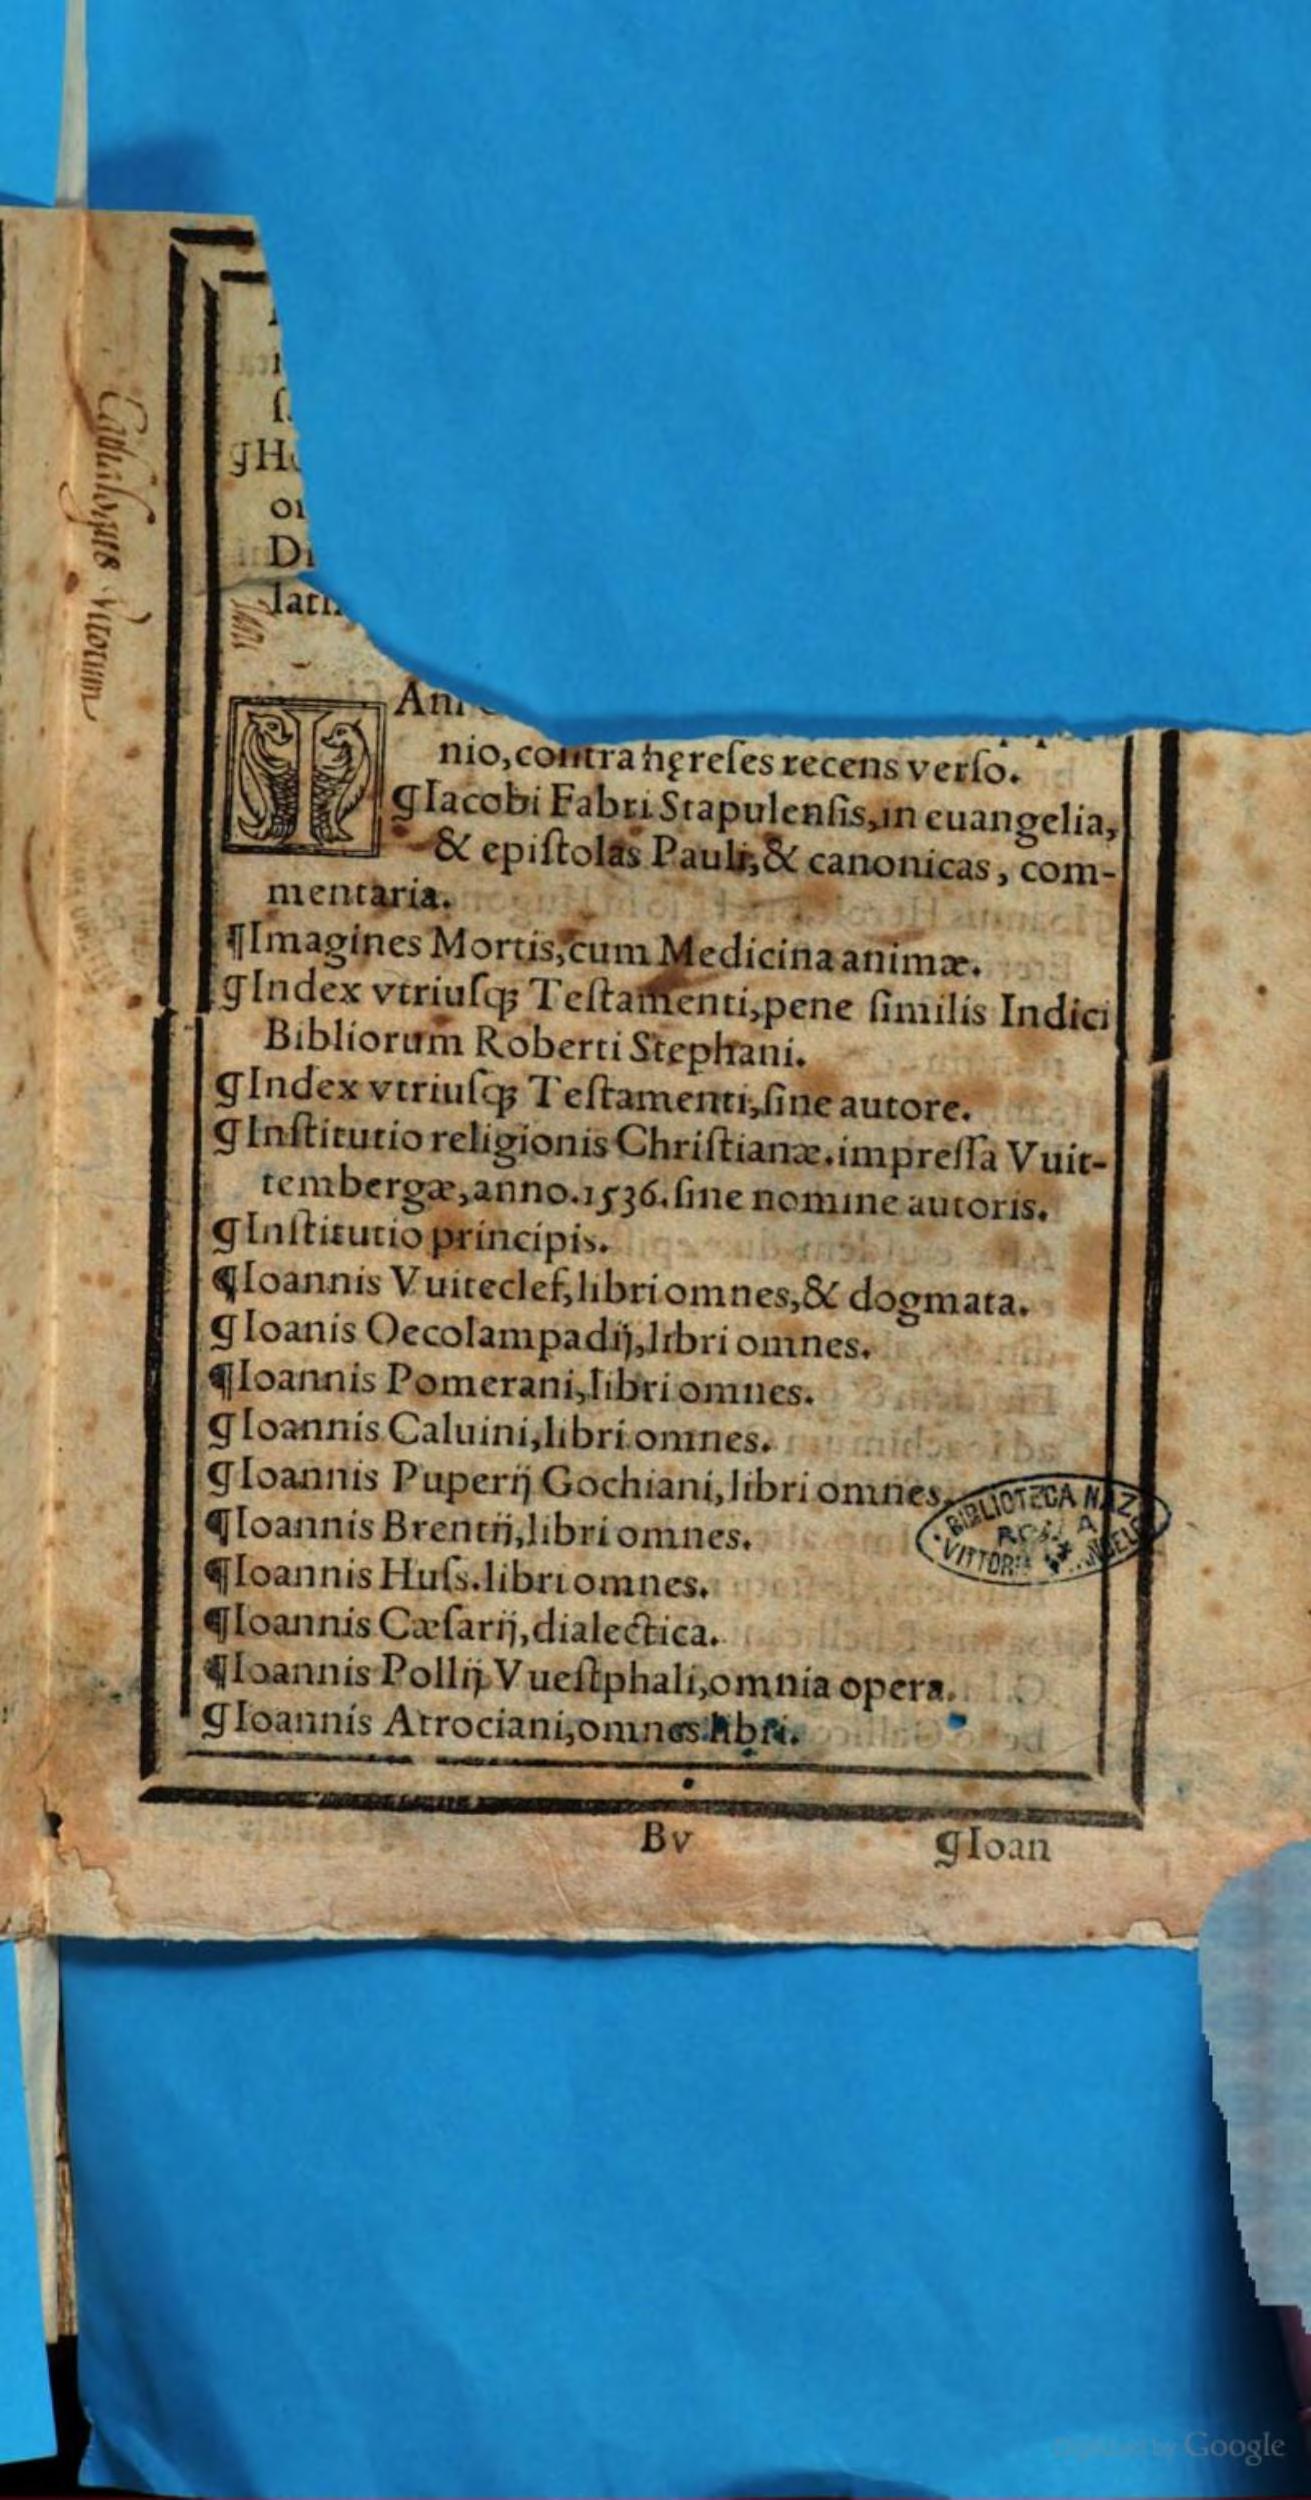 lati
nio, contra hęreſes recens verſo.
¶Iacobi Fabri Stapulenſis, in euangelia,
& epiſtolas Pauli, & canonicas, com-
mentaria.
¶Imagines Mortis, cum Medicina animæ.
¶Index vtriuſq; Teſtamenti, pene ſimilis Indici
Bibliorum Roberti Stephani.
¶Index vtriuſq; Teſtamenti, ſine autore.
¶Inſtitutio religionis Chriſtianæ. impreſſa Vuit-
tembergæ, anno. 1536. ſine nomine autoris.
¶Inſtitutio principis.
¶Ioannis Vuiteclef, libri omnes, & dogmata.
¶Ioanis Oecolampadij, libri omnes.
¶Ioannis Pomerani, libri omnes.
¶Ioannis Caluini, libri omnes.
¶Ioannis Puperij Gochiani, libri omnes.
¶Ioannis Brentij, libri omnes.
¶Ioannis Huſs. libri omnes.
¶Ioannis Cæſarij, dialectica.
¶Ioannis Pollij Vueſtphali, omnia opera.
¶Ioannis Atrociani, omnes libri.
Bv ¶Ioan
Cathalogus Virorum
BIBLIOTECA NAZ
ROMA
VITTORIO
Digitized by Google